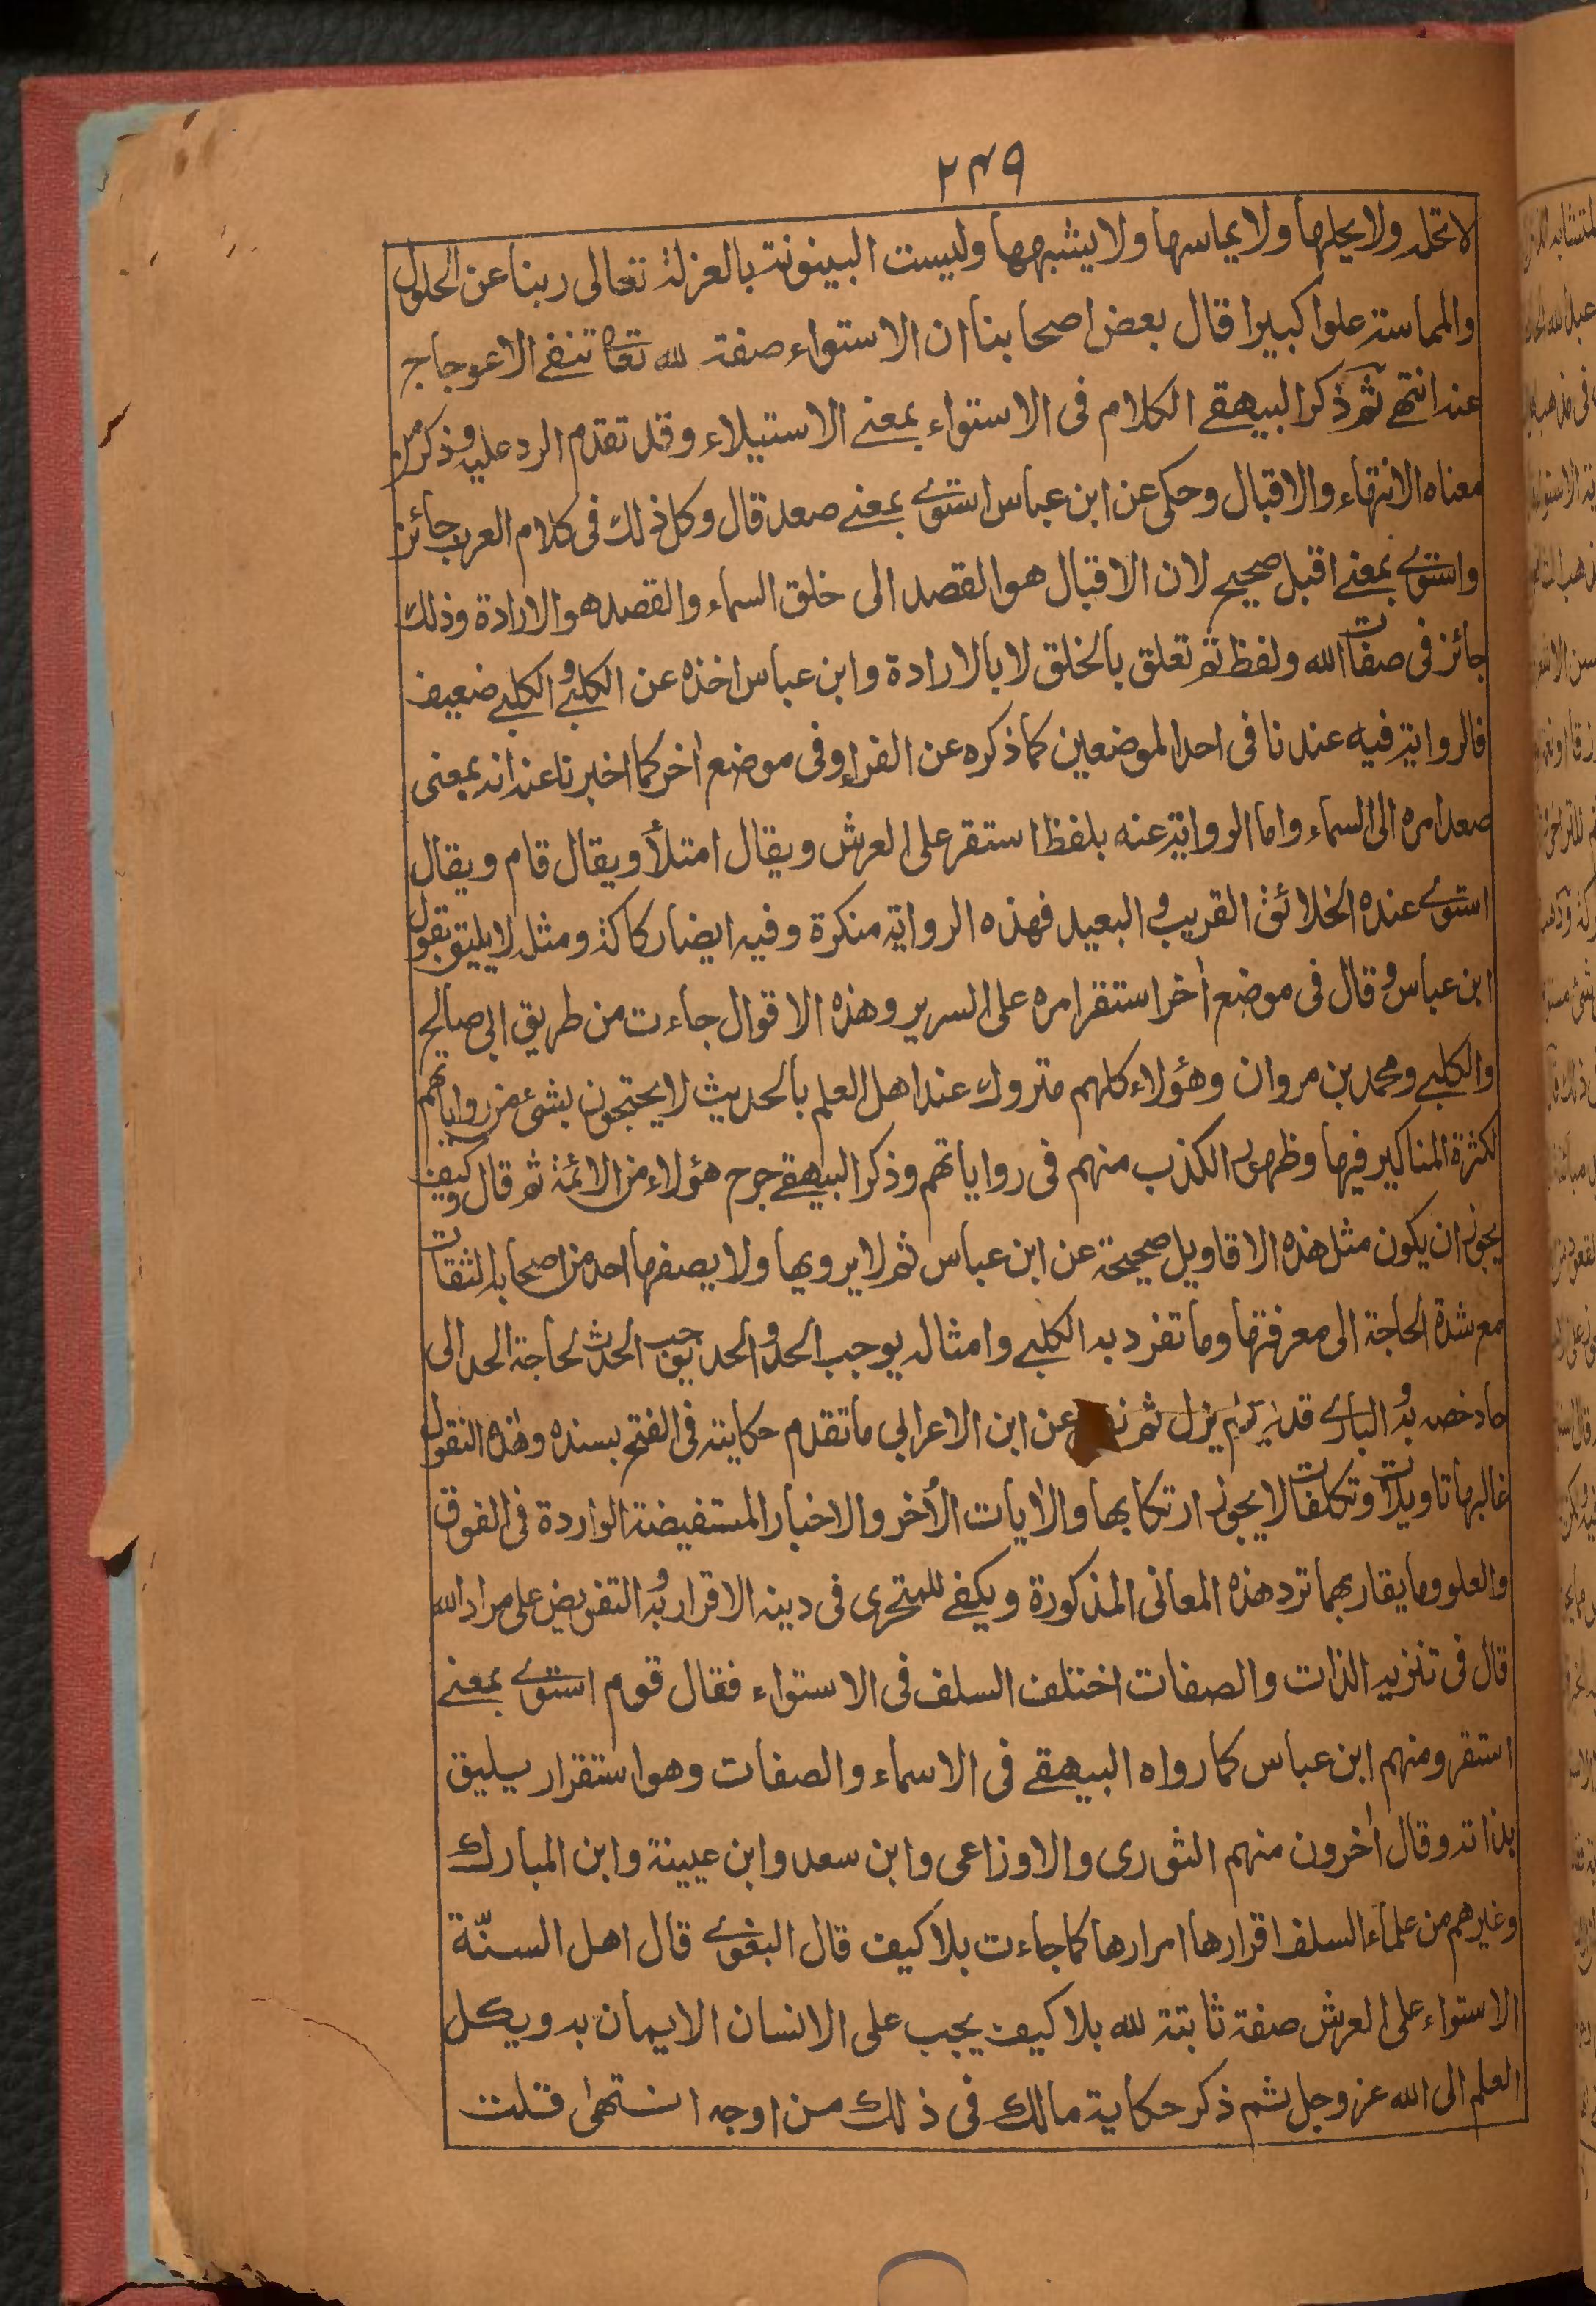 ٢٤٩
لا تحله ولا يحلها ولا يماسها ولا يشبهها وليست البينونة بالعزلة تعالى ربنا عن الحلول
والمماسة علوا كبيرا قال بعض اصحابنا ان الاستواء صفة لله تعالى تنفى الاعوجاج
عنه انتهى ثم ذكر البيهقى الكلام فى الاستواء بمعنى الاستيلاء وقد تقدم الرد عليه وذكر من
معناه الانتهاء والاقبال وحكى عن ابن عباس استوى بمعنى صعد قال وكل ذلك فى كلام العرب جائز
واستوى بمعنى اقبل صحيح لان الاقبال هو القصد الى خلق السماء والقصد هو الارادة وذلك
جائز فى صفات الله ولفظ ثم تعلق بالخلق لا بالارادة وابن عباس اخذه عن الكلبى والكلبى ضعيف
فالرواية فيه عندنا فى احد الموضعين كما ذكره عن الفراء وفى موضع اخر كما اخبرنا عنه انه بمعنى
صعد امره الى السماء واما الرواية عنه بلفظ استقر على العرش ويقال امتلأ ويقال قام ويقال
استوى عنده الخلائق القريب والبعيد فهذه الرواية منكرة وفيه ايضا ركاكة ومثله لا يليق بقول
ابن عباس وقال فى موضع أخر استقر امره على السرير وهذه الاقوال جاءت من طريق ابى صالح
والكلبى ومحمد بن مروان وهؤلاء كلهم متروك عند اهل العلم بالحديث لا يحتجون بشئ من رواياتهم
لكثرة المناكير فيها وظهور الكذب منهم فى رواياتهم وذكر البيهقى جرح هؤلاء من الائمة ثم قال وكيف
يجوز ان يكون مثل هذه الاقاويل صحيحة عن ابن عباس ثم لا يرويها ولا يصفها احد من اصحابه الثقات
مع شدة الحاجة الى معرفتها وما تفرد به الكلبى وامثاله يوجب الحد والحد يوجب الحدث لحاجة الحد الى
حاد خصه به والبارى قديم لم يزل ثم عن ابن الاعرابى ما تقدم حكايته فى الفتح بسنده وهذه النقول
غالبها تاويلات وتكلفات لا يجوز ارتكابها والأيات الأخر والاخبار المستفيضة الواردة فى الفوق
والعلو وما يقاربهما ترد هذه المعانى المذكورة ويكفى للمتحرى فى دينه الاقرار به والتفويض على مراد الله
قال فى تنزيه الذات والصفات اختلف السلف فى الاستواء فقال قوم استوى بمعنى
استقر ومنهم ابن عباس كما رواه البيهقى فى الاسماء والصفات وهو استقرار يليق
بذاته وقال أخرون منهم الثورى والاوزاعى وابن سعد وابن عيينة وابن المبارك
وغيرهم من علماء السلف اقرارها امرارها كما جاءت بلا كيف قال البغوى قال اهل السنّة
الاستواء على العرش صفة ثابتة لله بلا كيف يجب على الانسان الايمان به ويكل
العلم الى الله عز وجل ثم ذكر حكاية مالك فى ذلك من اوجه انتهى قلت